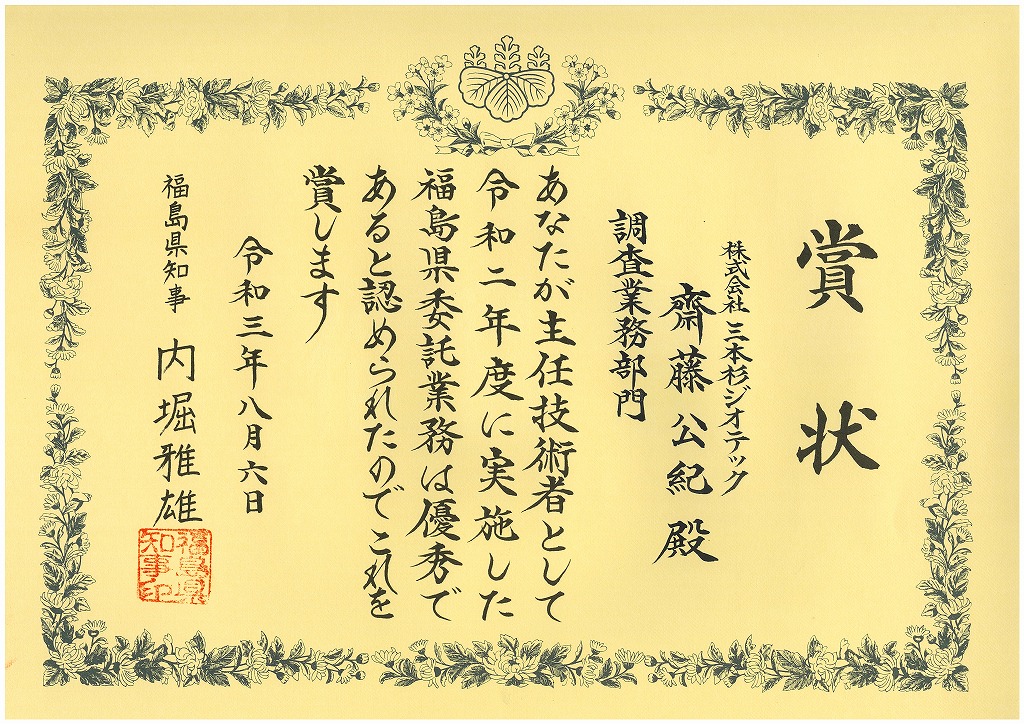 賞状
株式会社 三本杉ジオテック
齋藤公紀殿
調査業務部門
あなたが主任技術者として
令和二年度に実施した
福島県委託業務は優秀で
あると認められたのでこれを
賞します
令和三年八月六日
福島県知事 内堀雅雄
福島県
知事印